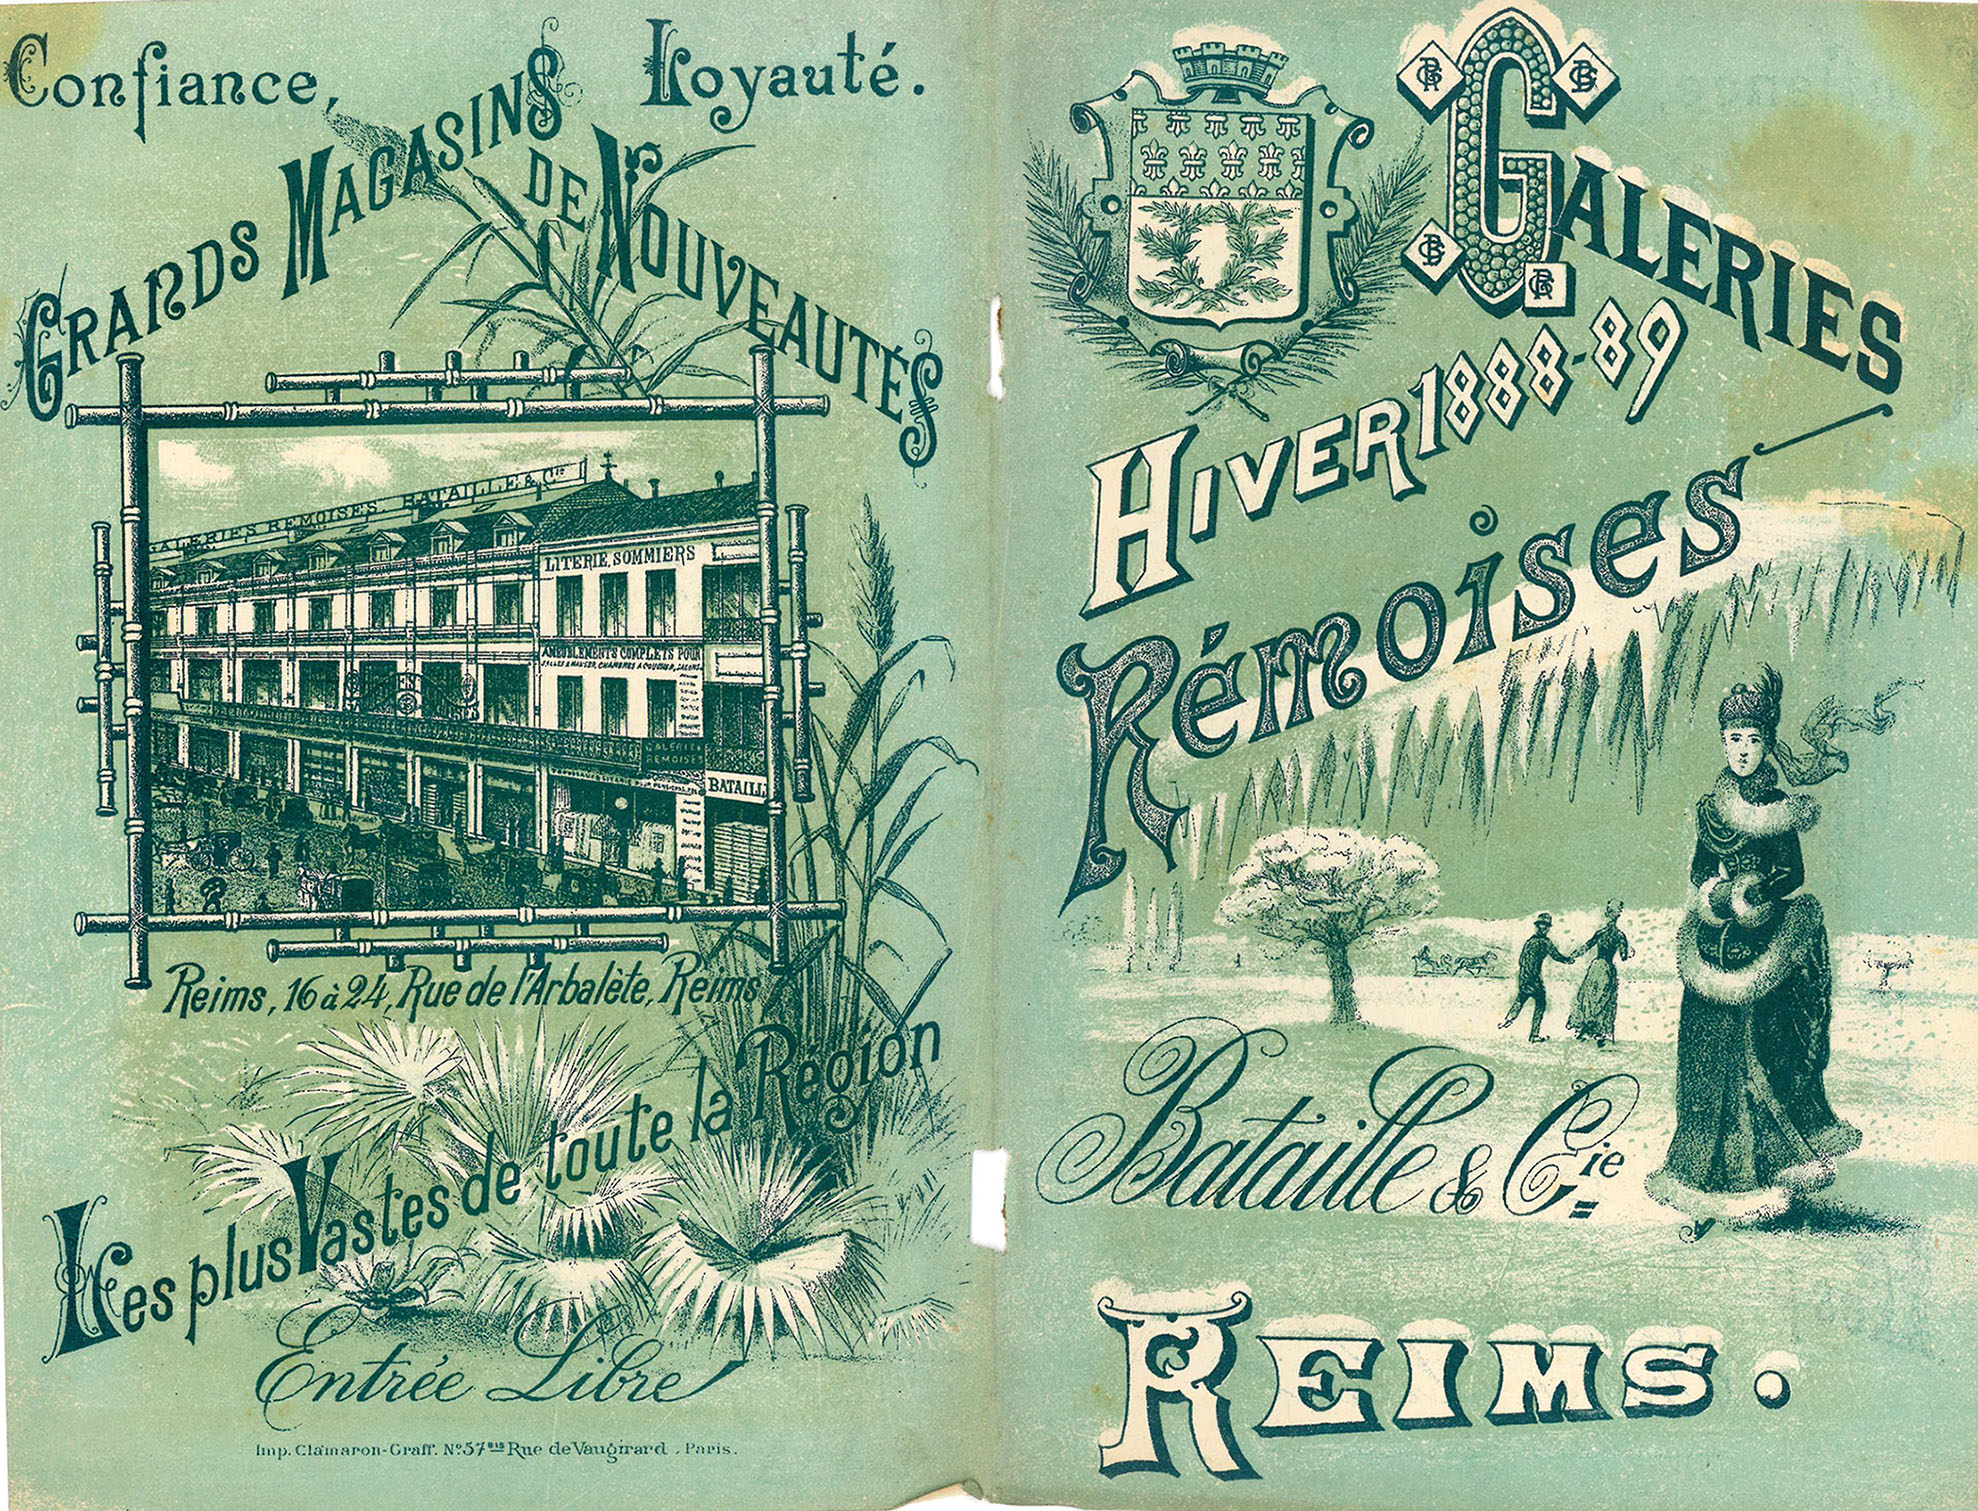 Confiance, Loyauté.
GRANDS MAGASINS DE NOUVEAUTÉS
GALERIES REMOISES. BATAILLE & Cie
LITERIE, SOMMIERS
AMEUBLEMENTS COMPLETS POUR
SALLES A MANGER, CHAMBRES A COUCHER, SALONS.
GALERIES
REMOISES
BATAILL
Reims, 16 à 24, Rue de l'Arbalète, Reims
Les plus Vastes de toute la Région
Entrée Libre
Imp. Clamaron-Graff. No 57 BIS Rue de Vaugirard. Paris.
GALERIES
HIVER 1888-89
Rémoises
Bataille & Cie
REIMS.